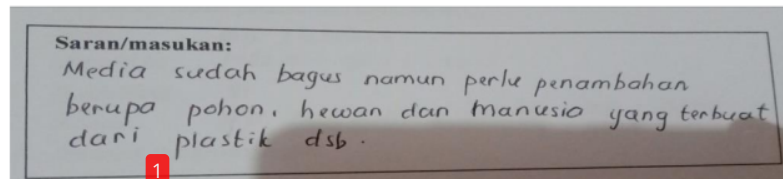 Saran/masukan:
Media sudah bagus namun perlu penambahan
berupa pohon, hewan dan manusia yang terbuat
dari plastik dsb.
1